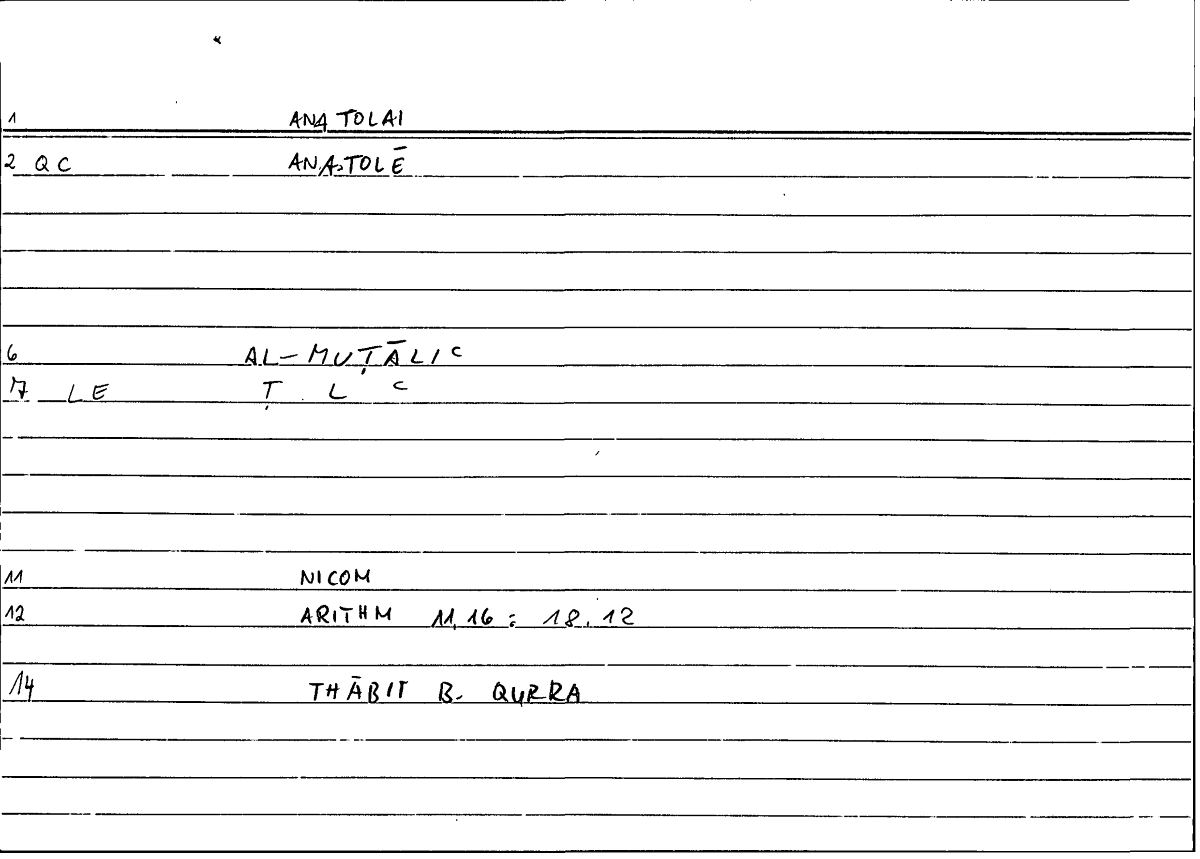 1 ANATOLAI
2 QC ANATOLĒ
6 AL-MUṬĀLIᶜ
17 LE Ṭ L ᶜ
11 NICOM
12 ARITHM 11,16 : 18.12
14 THĀBIT B. QURRA